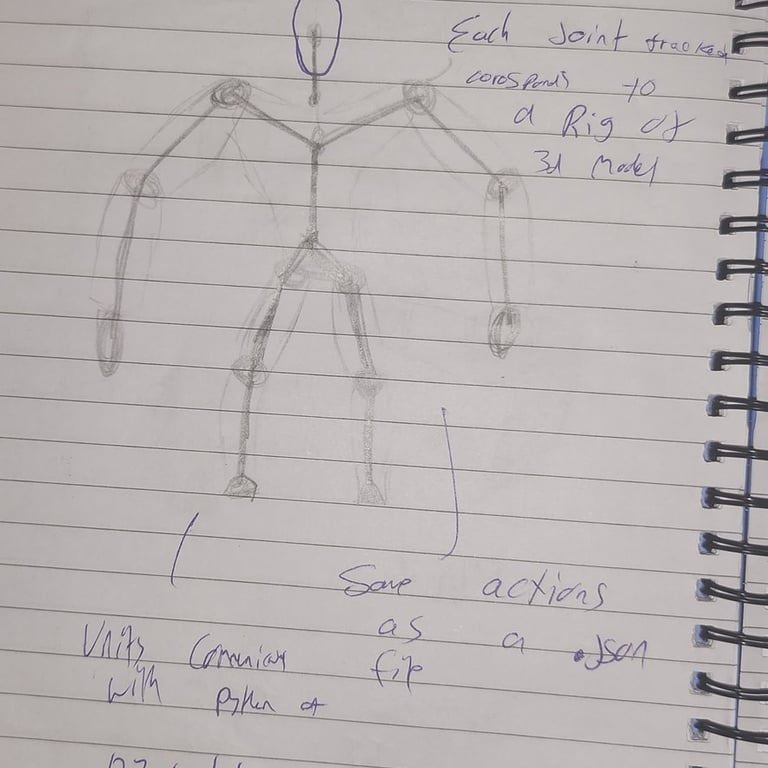 Each Joint tracked
corosponds to
a Rig of
3d Model
Save actions
as a .Json
file
Units
with python